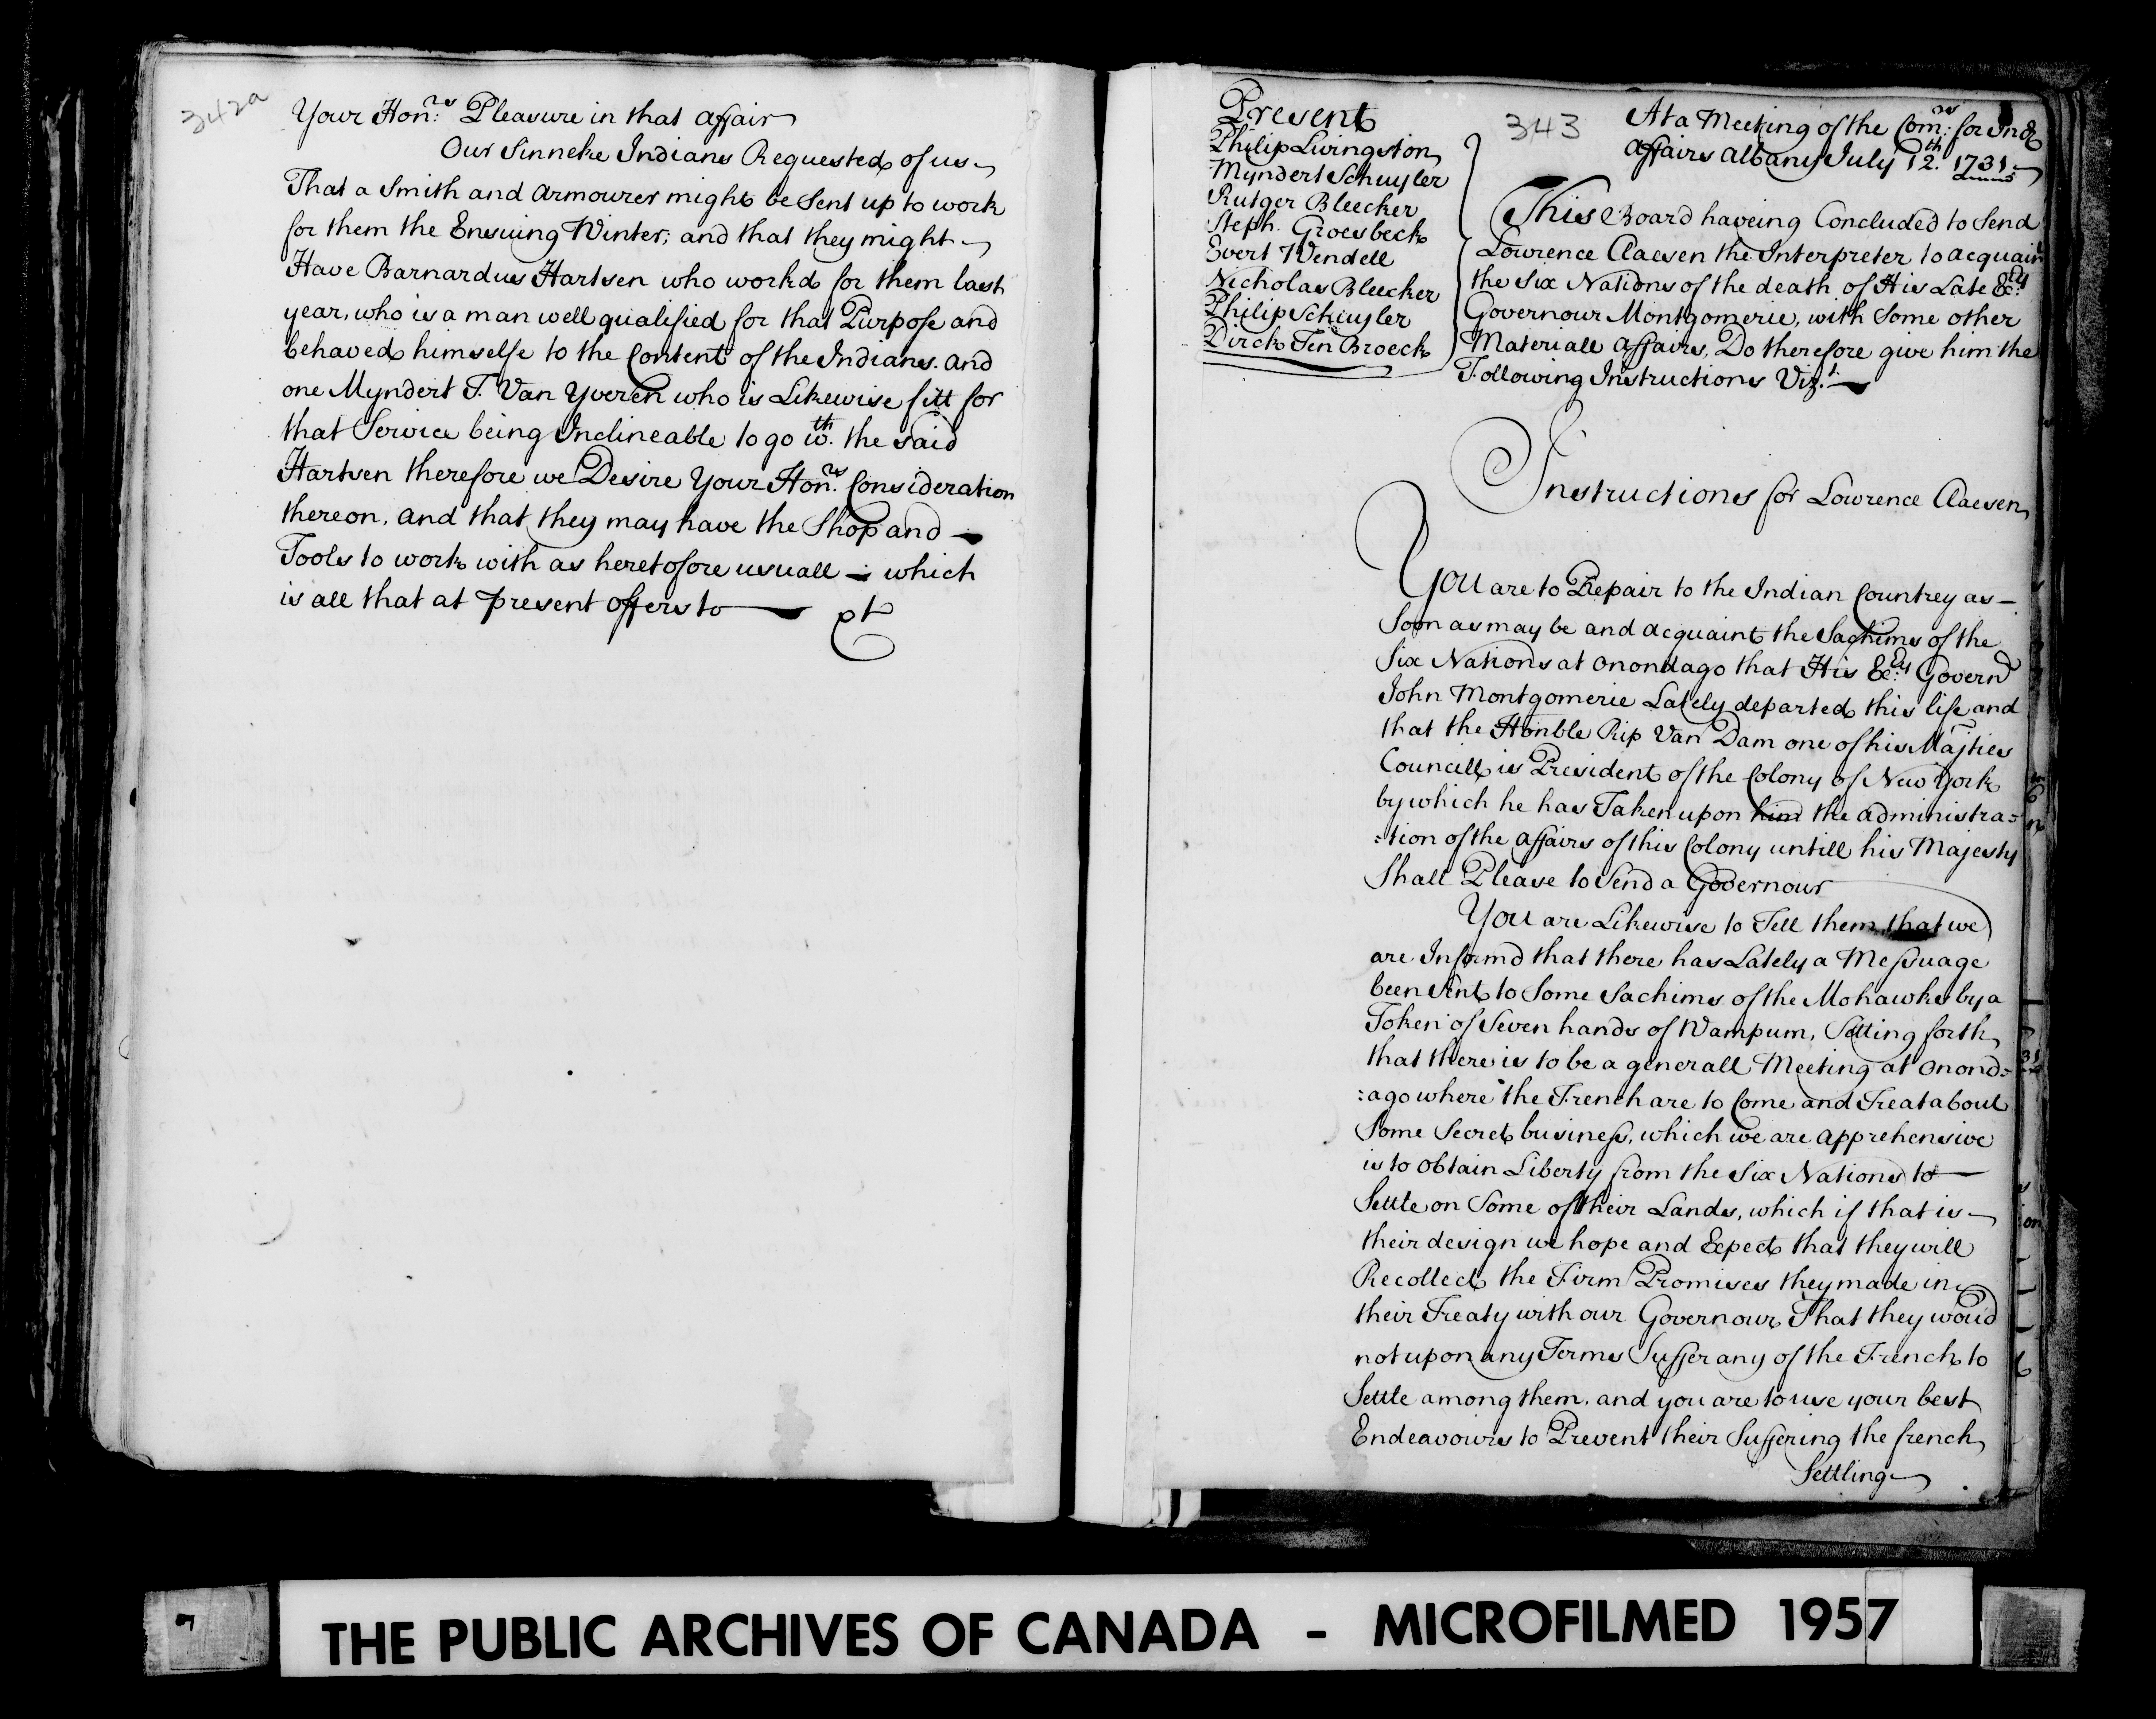 342a
Your Honrs. Pleasure in that affair
Our Sinneke Indians Requested of us
That a Smith and armourer might be Sent up to work
for them the Ensuing Winter, and that they might
Have Barnardus Hartsen who workd for them last
year, who is a man well qualified for that Purpose and
behaved himselfe to the Content of the Indians. and
one Myndert T. Van Yveren who is Likewise fitt for
that Service being Inclineable to go wth. the said
Hartsen therefore we Desire Your Honrs. Consideration
thereon, and that they may have the Shop and
Tools to work with as heretofore usuall - which
is all that at present offers to
343
Present
Philip Livingston
Myndert Schuyler
Rutger Bleecker
Steph. Groesbeck
Evert Wendell
Nicholas Bleecker
Philip Schuyler
Dirck Ten Broeck
At a Meeting of the Comrs. for Ind
affairs Albany July 12th. 1731
This Board haveing Concluded to Send
Lowrence Claesen the Interpreter to acquain
the Six Nations of the death of His Late Excy.
Governour Montgomerie, with Some other
Materiall affairs, Do therefore give him the
Following Instructions Vizt.
Instructions for Lowrence Claesen
You are to Repair to the Indian Countrey as
Soon as may be and acquaint the Sachims of the
Six Nations at onondago that His Excy. Governr
John Montgomerie Lately departed this life and
that the Honble Rip Van Dam one of his Majties
Councill is President of the Colony of New York
by which he has Taken upon him the administra=
:tion of the affairs of this Colony untill his Majesty
Shall Please to Send a Governour
You are Likewise to Tell them that we
are Informd that there has Lately a Messuage
been Sent to Some Sachims of the Mohawks by a
Token of Seven hands of Wampum, Setting forth
that there is to be a generall Meeting at onond=
:ago where the French are to Come and Treat about
Some Secret business, which we are apprehensive
is to obtain Liberty from the Six Nations to
Settle on Some of their Lands, which if that is
their design we hope and Expect that they will
Recollect the Firm Promises they made in
their Treaty with our Governour That they woud
not upon any Terms Suffer any of the French to
Settle among them, and you are to use your best
Endeavours to Prevent their Suffering the french
Settling
THE PUBLIC ARCHIVES OF CANADA - MICROFILMED 1957